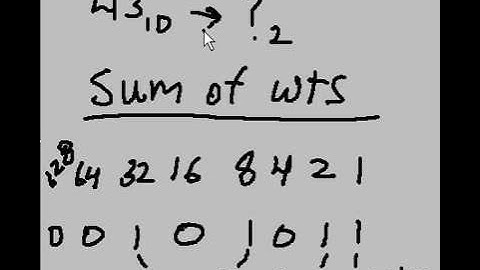 43₁₀ → ?₂
Sum of wts
128 64 32 16 8 4 2 1
0 0 1 0 1 0 1 1